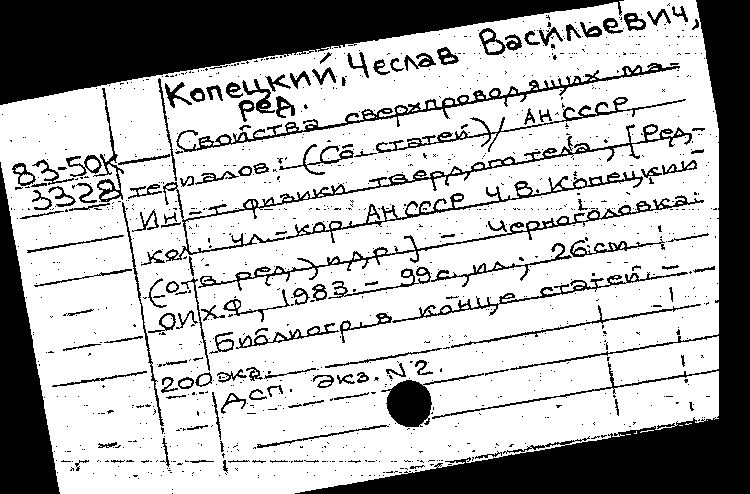 Копецкий, Чеслав Васильевич,
ред.
83-50К
3328
Свойства сверхпроводящих ма-
териалов: (Сб. статей) / АН СССР,
Ин-т физики твердого тела; [Ред.-
кол.: чл.-кор. АН СССР Ч.В. Копецкий
(отв. ред.) и др.] - Черноголовка:
ОИХФ, 1983. - 99с., ил.; 26 см. -
Библиогр. в конце статей. -
200 экз.
ДСП. Экз. N 2.